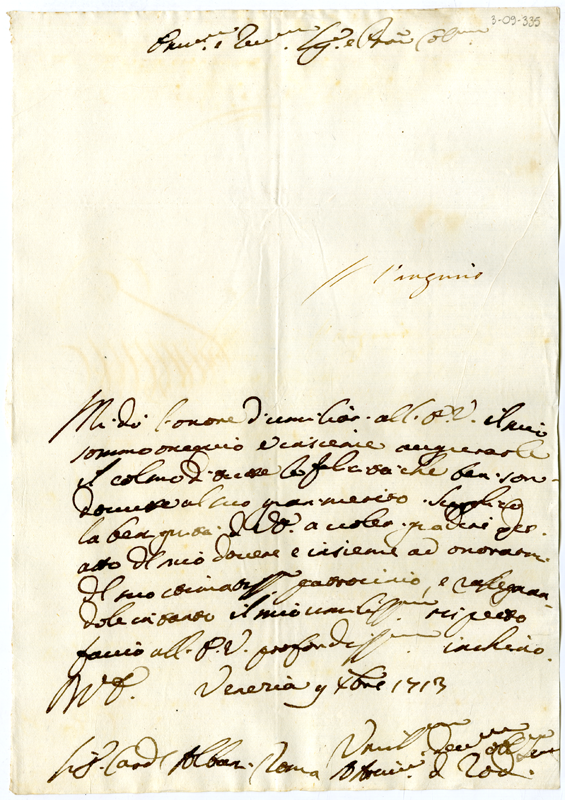 3-09-335
Em.mo e Rev.mo Sig.r e Pron Col.mo
l'augurio
Mi dò l'onore d'umiliar all'E.V. il mio
sommo ossequio e insieme augurarle
il colmo di tutte le felicità che ben son
dovute al suo gran merito. Supplico
la benignità di V.E. a voler gradir quest'
atto del mio dovere e insieme ad onorarmi
del suo stimatiss.mo patrocinio, e rassegnan-
dole intanto il mio umiliss.mo rispetto
faccio all'E.V. profondiss.mo inchino.
Venezia 9 Xbre 1713
Umil.mo Dev.mo Obl.mo
Sig. Card. Alban. Roma